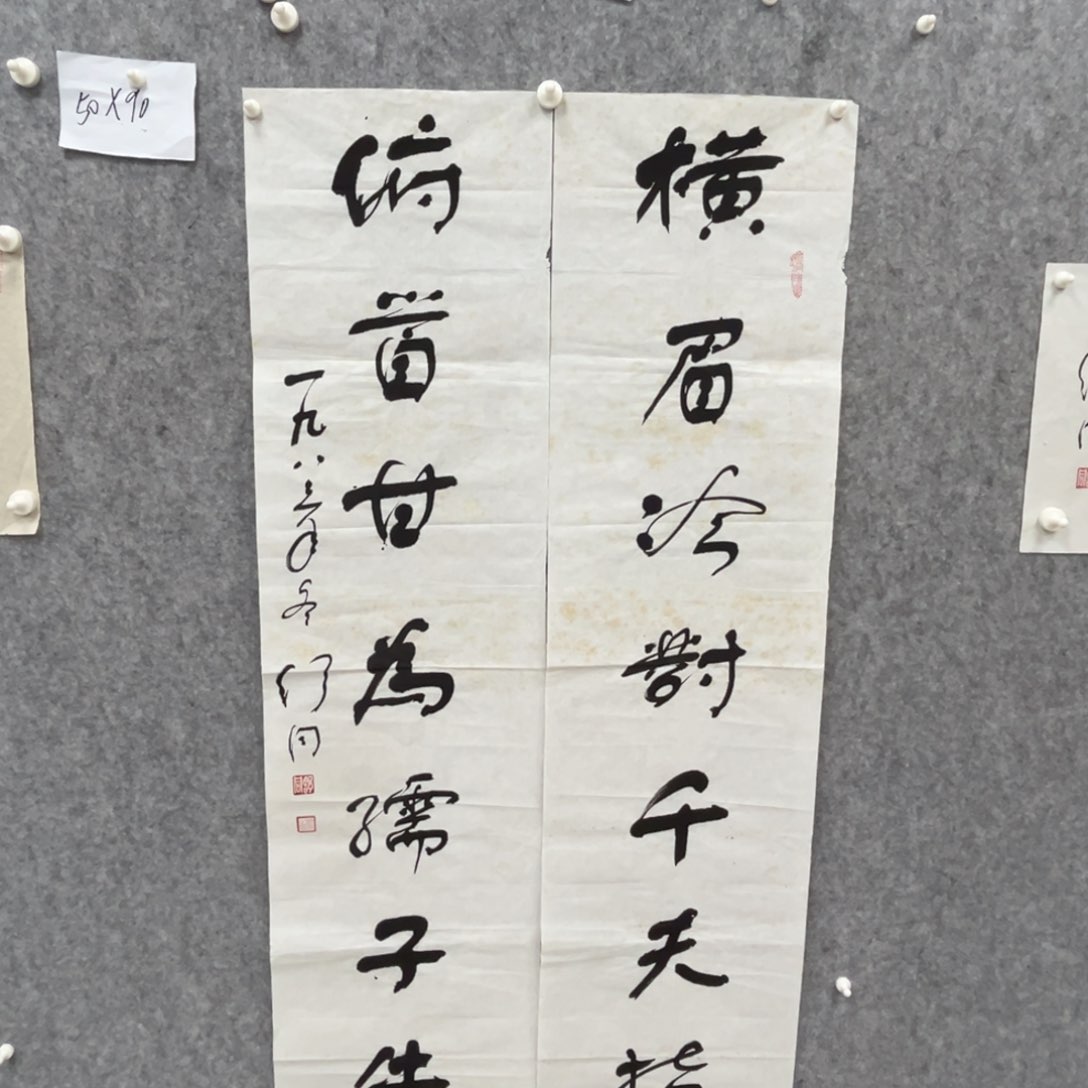 50X90
横眉冷對千夫指
俯首甘為孺子牛
一九八三年冬
舒同